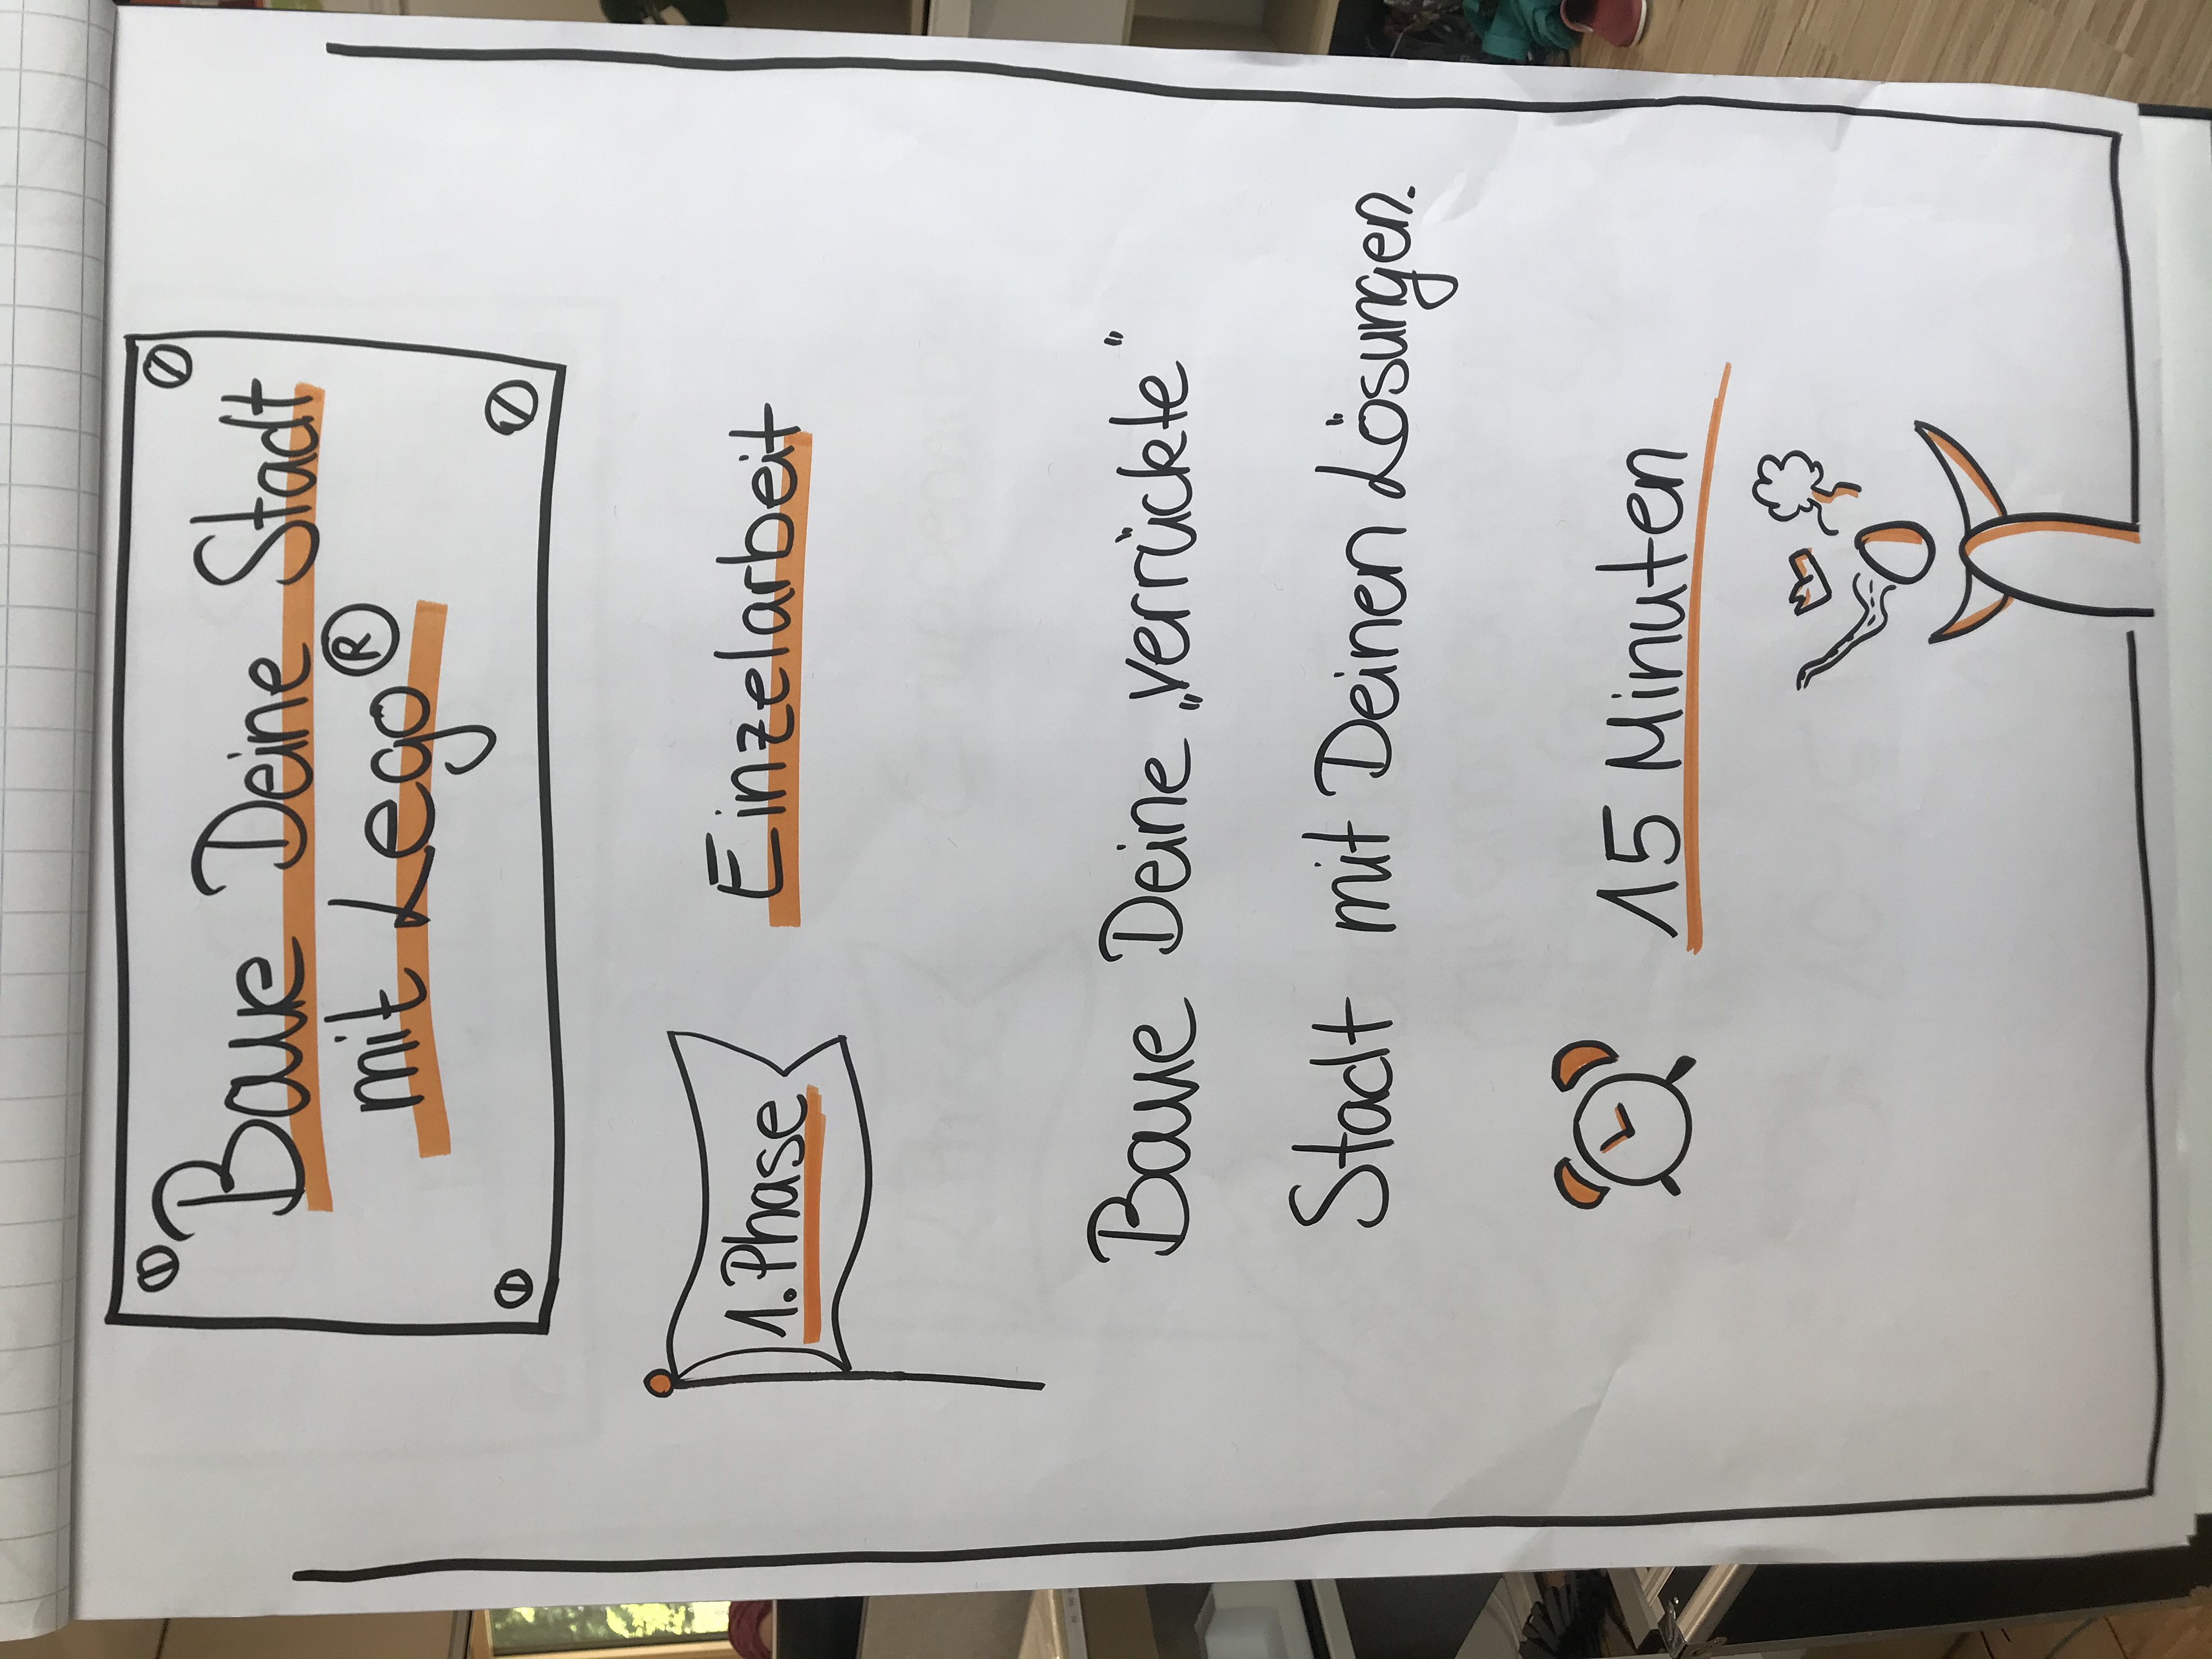 Baue Deine Stadt
mit Lego®
1. Phase
Einzelarbeit
Baue Deine „verrückte“
Stadt mit Deinen Lösungen.
15 Minuten